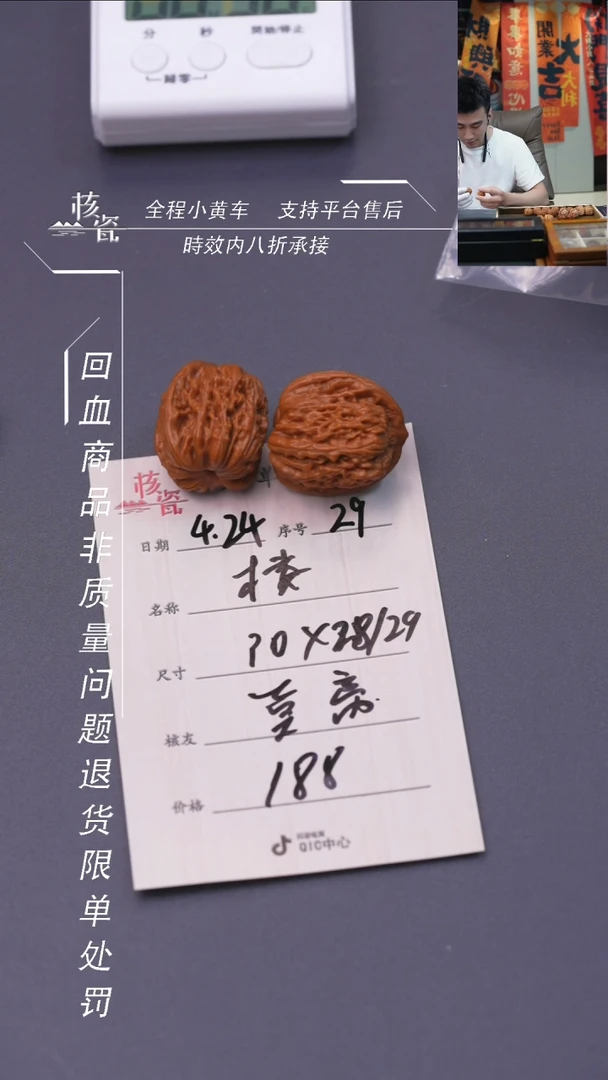 分 秒 開始/停止
歸零
核瓷
全程小黄车 支持平台售后
時效内八折承接
回血商品非质量问题退货限单处罚
事事如意
開業大吉
大利
核瓷
日期 4.24 序号 29
名称
尺寸 30×28/29
核友
价格 188
QIC中心